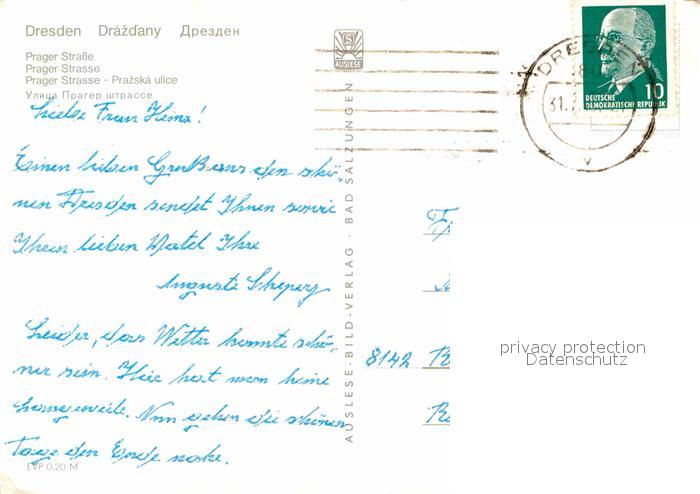 Dresden Drážďany Дрезден
Prager Straße
Prager Strasse
Prager Strasse - Pražská ulice
Улица Прагер штрассе
Liebe Frau
Einen lieben Gruß aus den schö,
nen Dresden sendet Ihnen sowie
Ihren lieben Ihre
Auguste
Leider, das Wetter konnte schö,
ner sein. Hier hat man keine
Langeweile. Nun gehen die schönen
Tage den Ende nahe.
EVP 0,20 M
AUSLESE
AUSLESE-BILD-VERLAG · BAD SALZUNGEN
DRESDEN
31.
10
DEUTSCHE
DEMOKRATISCHE REPUBLIK
8142
privacy protection
Datenschutz